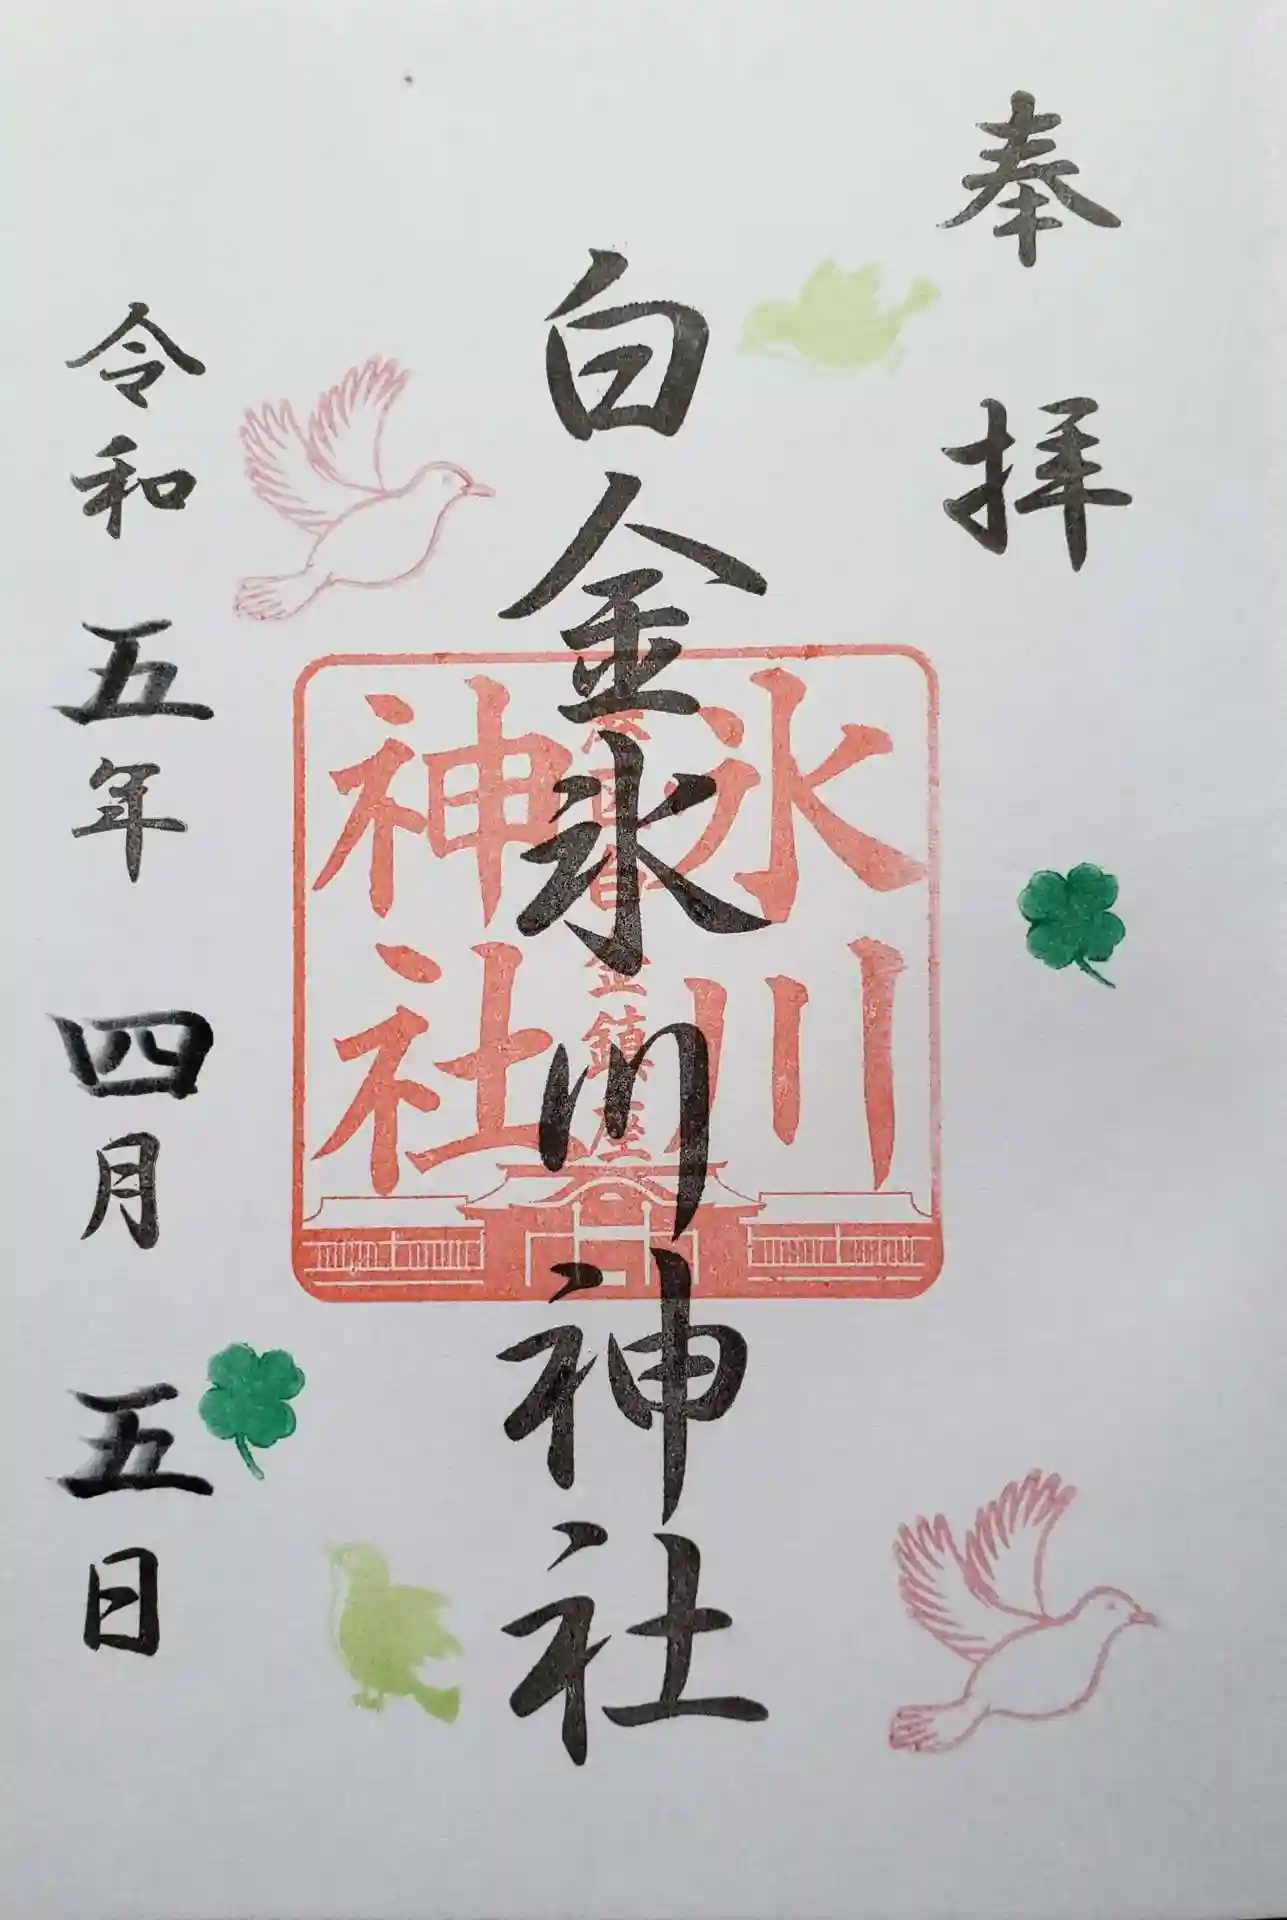 奉拝
白金氷川神社
氷川神社
港区白金鎮座
令和五年四月五日